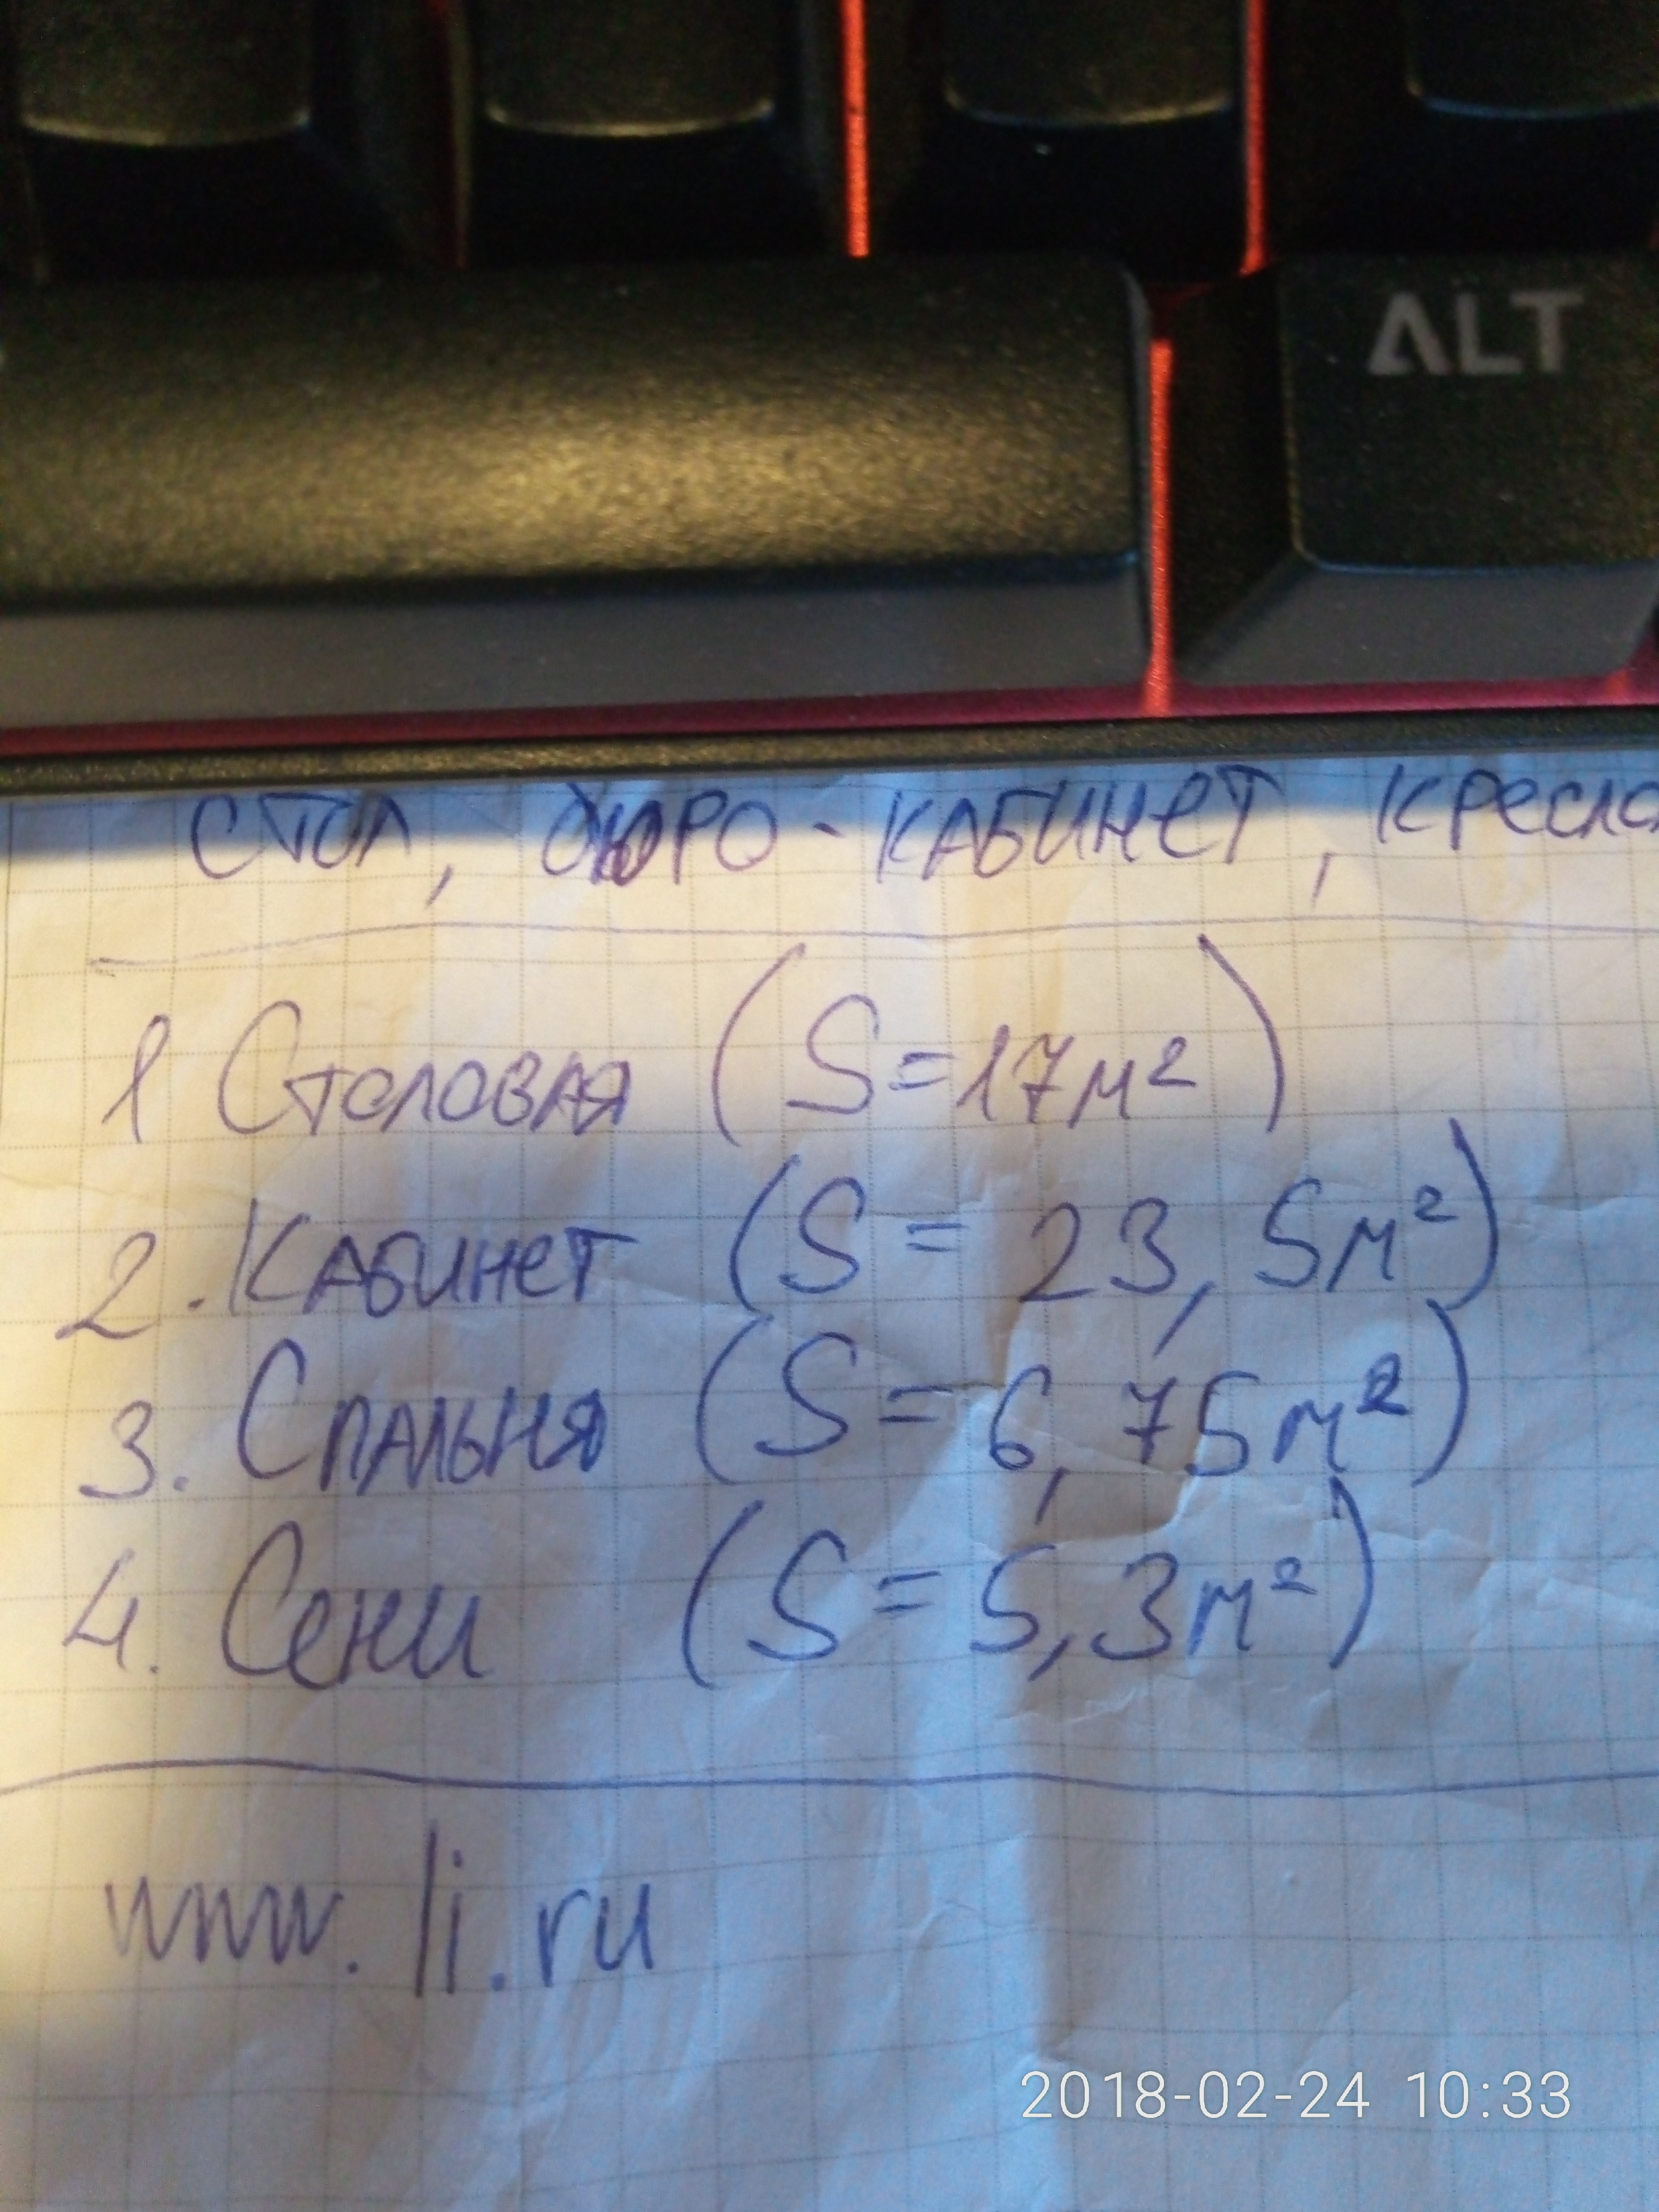 ALT
стол, бюро-кабинет, кресло
1 Столовая (S=17м²)
2. Кабинет (S = 23,5м²)
3. Спальня (S = 6,75м²)
4. Сени (S = 5,3м²)
www.li.ru
2018-02-24 10:33